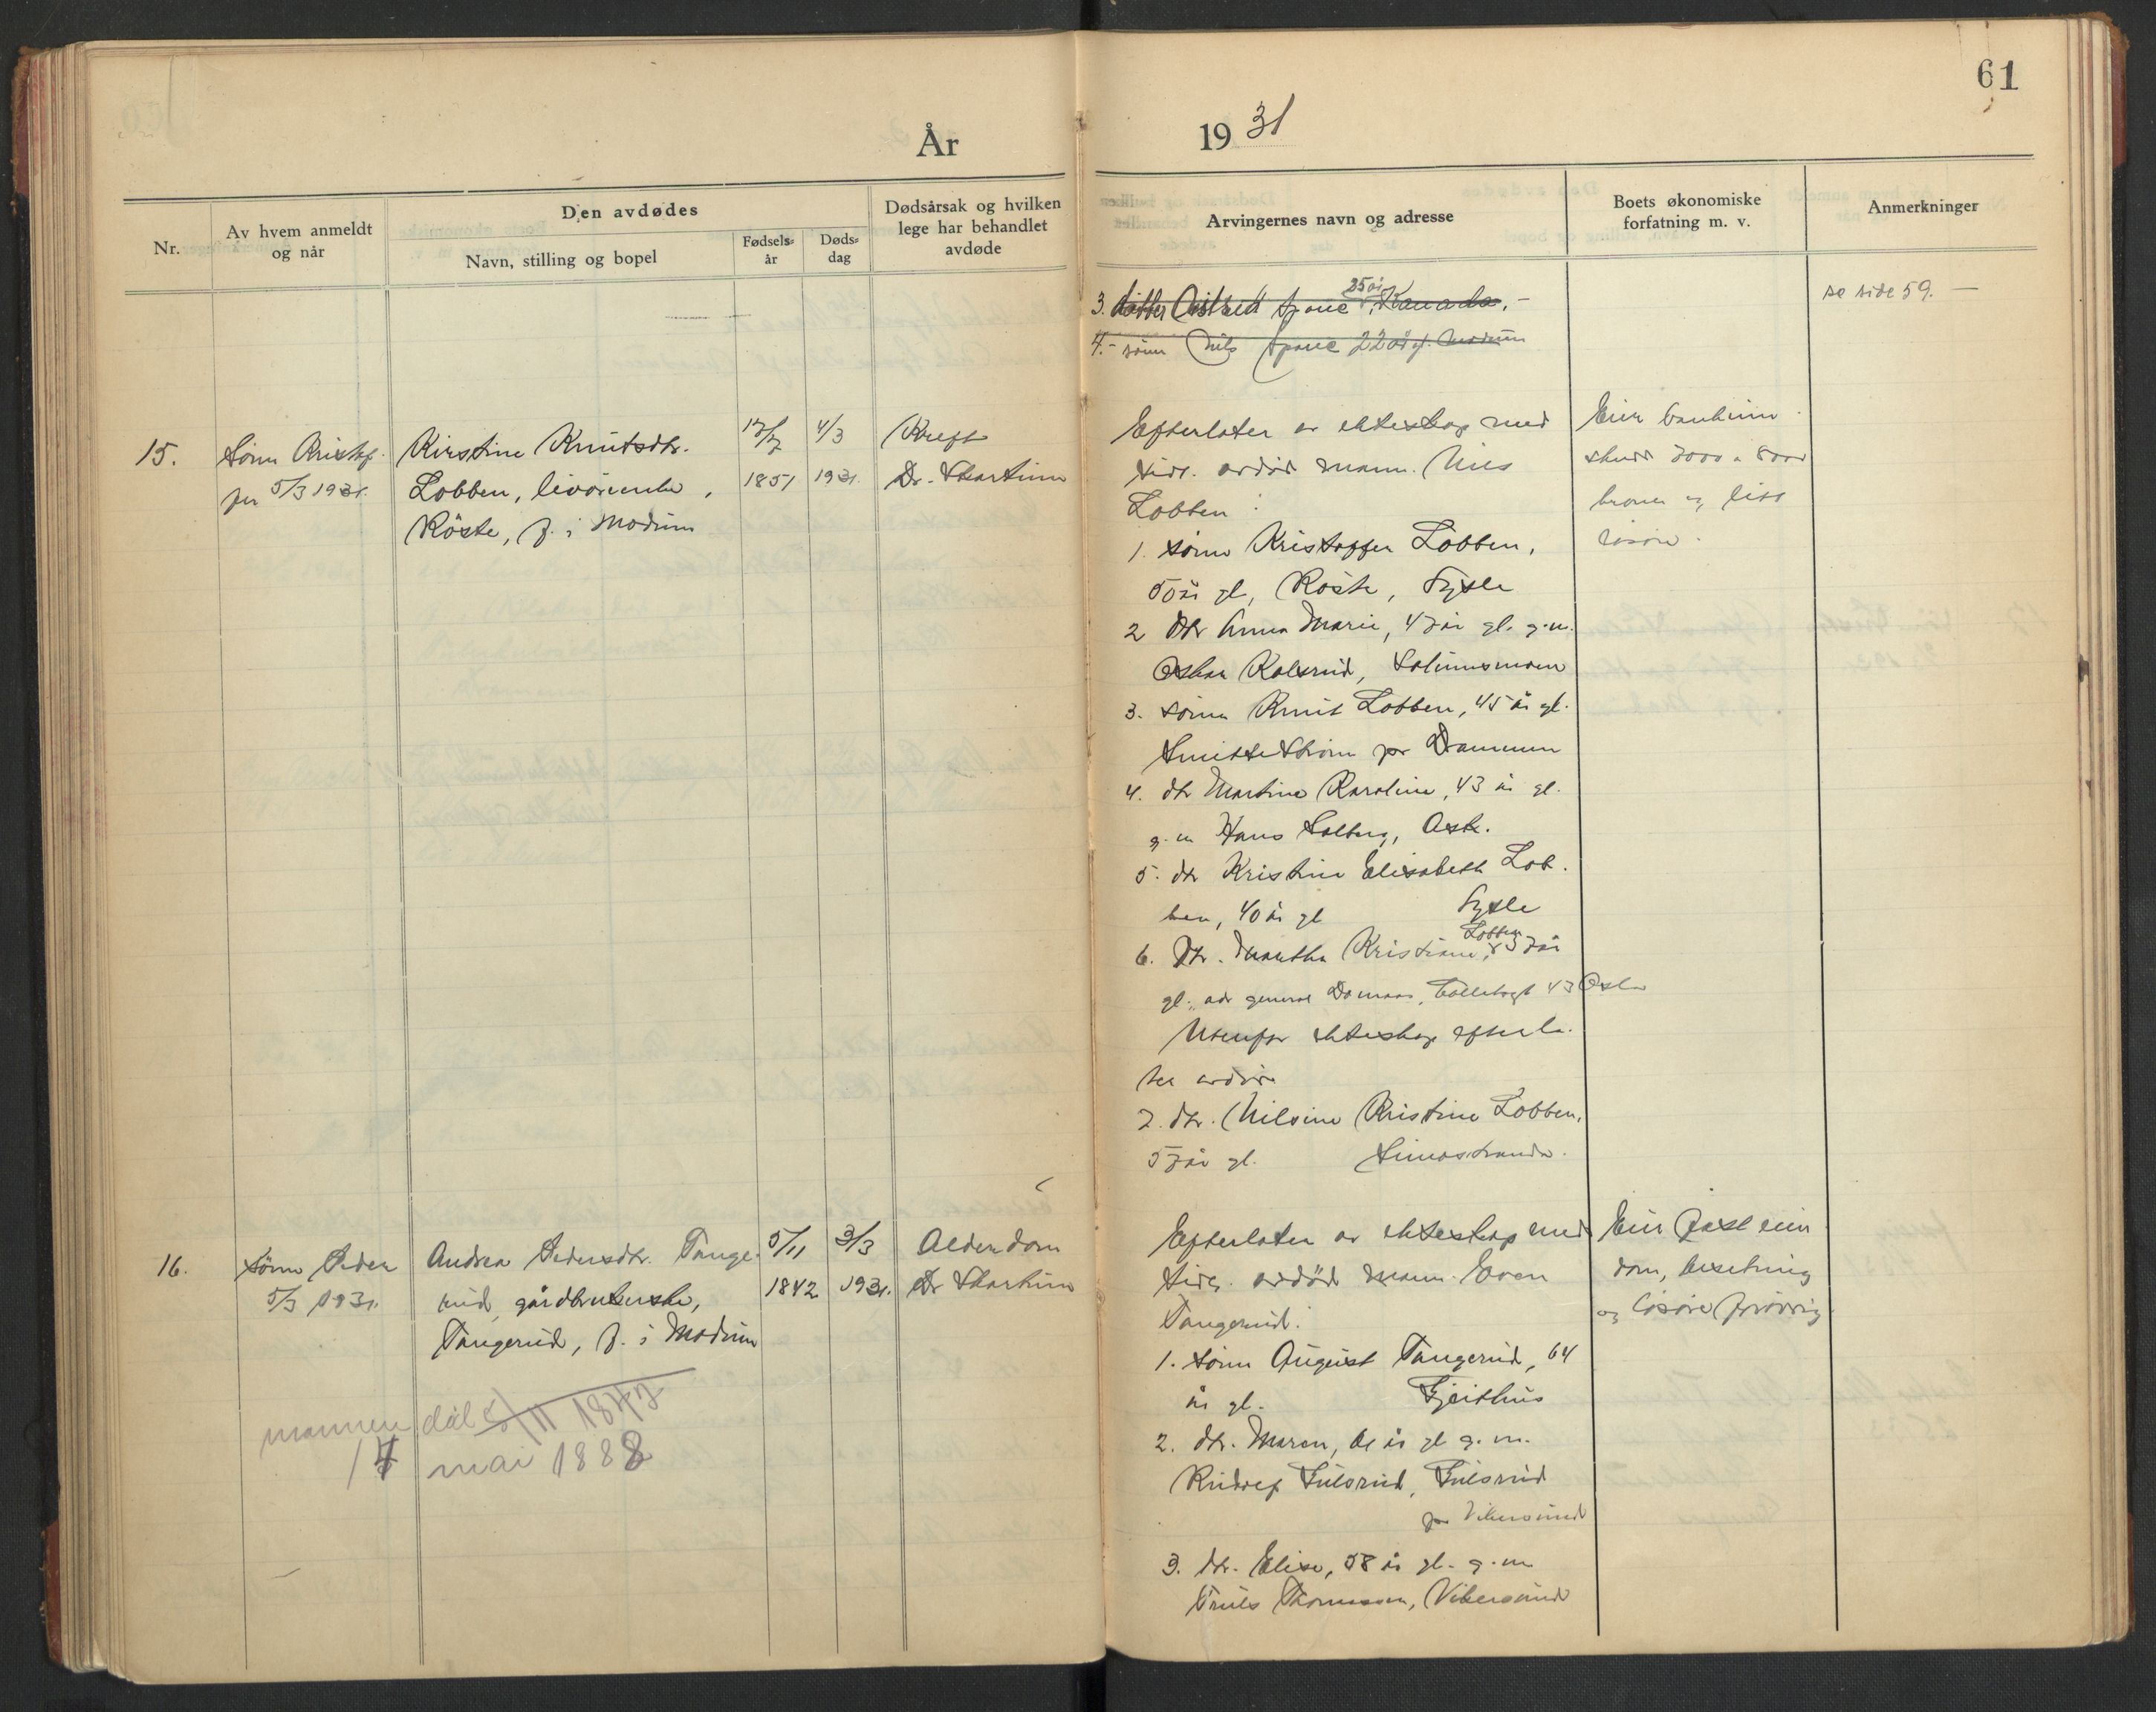 61
År 1931
Nr.
Av hvem anmeldt
og når
Den avdødes
Navn, stilling og bopel
Fødsels-
år
Døds-
dag
Dødsårsak og hvilken
lege har behandlet
avdøde
Arvingernes navn og adresse
Boets økonomiske
forfatning m. v.
Anmerkninger
25 år
3. datter Astrid Spone, Kanada. -
4. - sønn Nils Spone 22 år gl. Modum
se side 59. -
15.
Sønn Kristof-
fer 5/3 1931.
Kirstine Knutsdtr.
Lobben, livørenke,
Røste, f. i Modum
17/7
1851
4/3
1931.
Kreft
Dr. Thortium
Efterlater av ekteskap med
tidl. avdød mann Nils
Lobben:
1. sønn Kristoffer Lobben,
50 år gl, Røste, Sysle
2 dtr Anna Marie, 47 år gl. g.m.
Oskar Kolsrud,
3. sønn Knut Lobben, 45 år gl.
Smittestrøm pr Drammen
4. dtr Martine Karoline, 43 år gl.
g.m Hans Solberg, Ask.
5. dtr Kristine Elisabeth Lob-
ben, 40 år gl Sysle
Lobben
6. Dtr. Martha Kristiane, 37 år
gl. adr general Oslo
Utenfor ekteskap efterla-
ter avdøde
7. dtr. Nilsine Kristine Lobben,
57 år gl. Simostranda.
Eier bankinn-
skudd 7000 a 8000
kroner og litt
løsøre.
16.
sønn Peder
5/3 1931.
Andrea Pedersdtr. Tange-
rud, gårdbrukerske,
Tangerud, f. i Modum
5/11
1842
3/3
1931.
Alderdom
Dr Thortium
mannen død 5/11 1847
14 mai 1888
Efterlater av ekteskap med
tidl. avdød mann Even
Tangerud:
1. sønn August Tangerud, 64
år gl. Gjeithus
2. dtr. Maren, 61 år gl g.m.
Kudolf Fulsrud, Fulsrud
pr Vikersund
3. dtr. Elise, 58 år gl. g.m
Truls Thomesen, Vikersund
Eier fast eien-
dom, besetning
og løsøre forøvrig